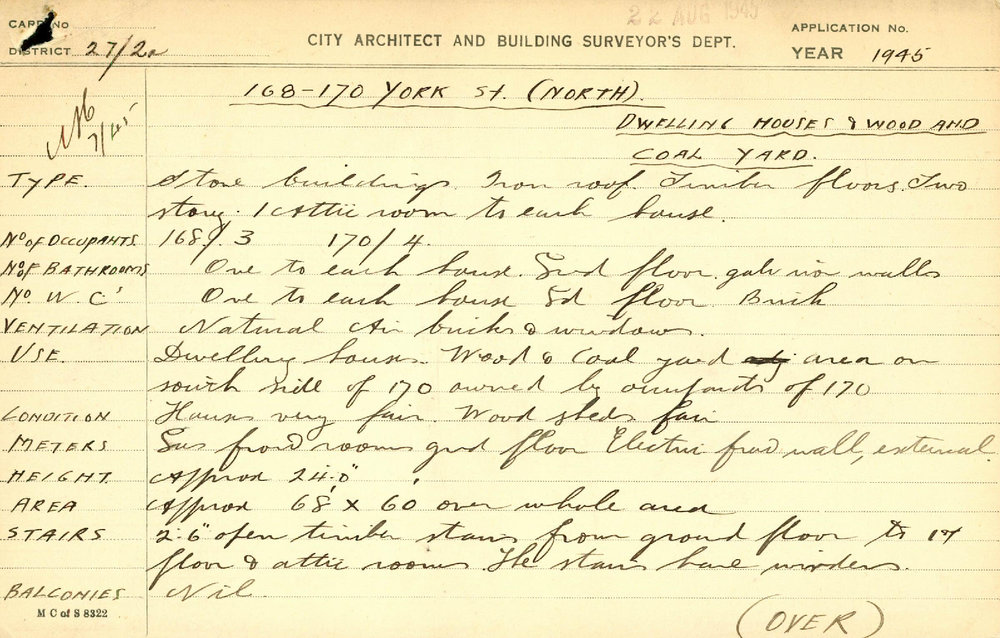 22 AUG 1945
CARD No
DISTRICT 27/2a
CITY ARCHITECT AND BUILDING SURVEYOR'S DEPT.
APPLICATION No.
YEAR 1945
7/45
168-170 YORK St. (NORTH).
DWELLING HOUSES & WOOD AND
COAL YARD.
TYPE. Stone buildings. Iron roof. Timber floors. Two
story. 1 Attic room to each house.
No of OCCUPANTS 168/3 170/4.
No of BATHROOMS One to each house. Grd floor. galv iron walls
No. W.C's One to each house Gd floor Brick
VENTILATION Natural Air bricks & windows.
USE. Dwelling houses. Wood & Coal yard area on
south side of 170 owned by occupants of 170
CONDITION Houses very fair. Wood sheds fair
METERS Gas front rooms grd floor Electric front wall, external.
HEIGHT. Approx 24'.0"
AREA Approx 68' x 60' over whole area
STAIRS 2'.6" open timber stairs from ground floor to 1st
floor & attic rooms. The stairs have winders.
BALCONIES Nil.
M C of S 8322
(OVER)